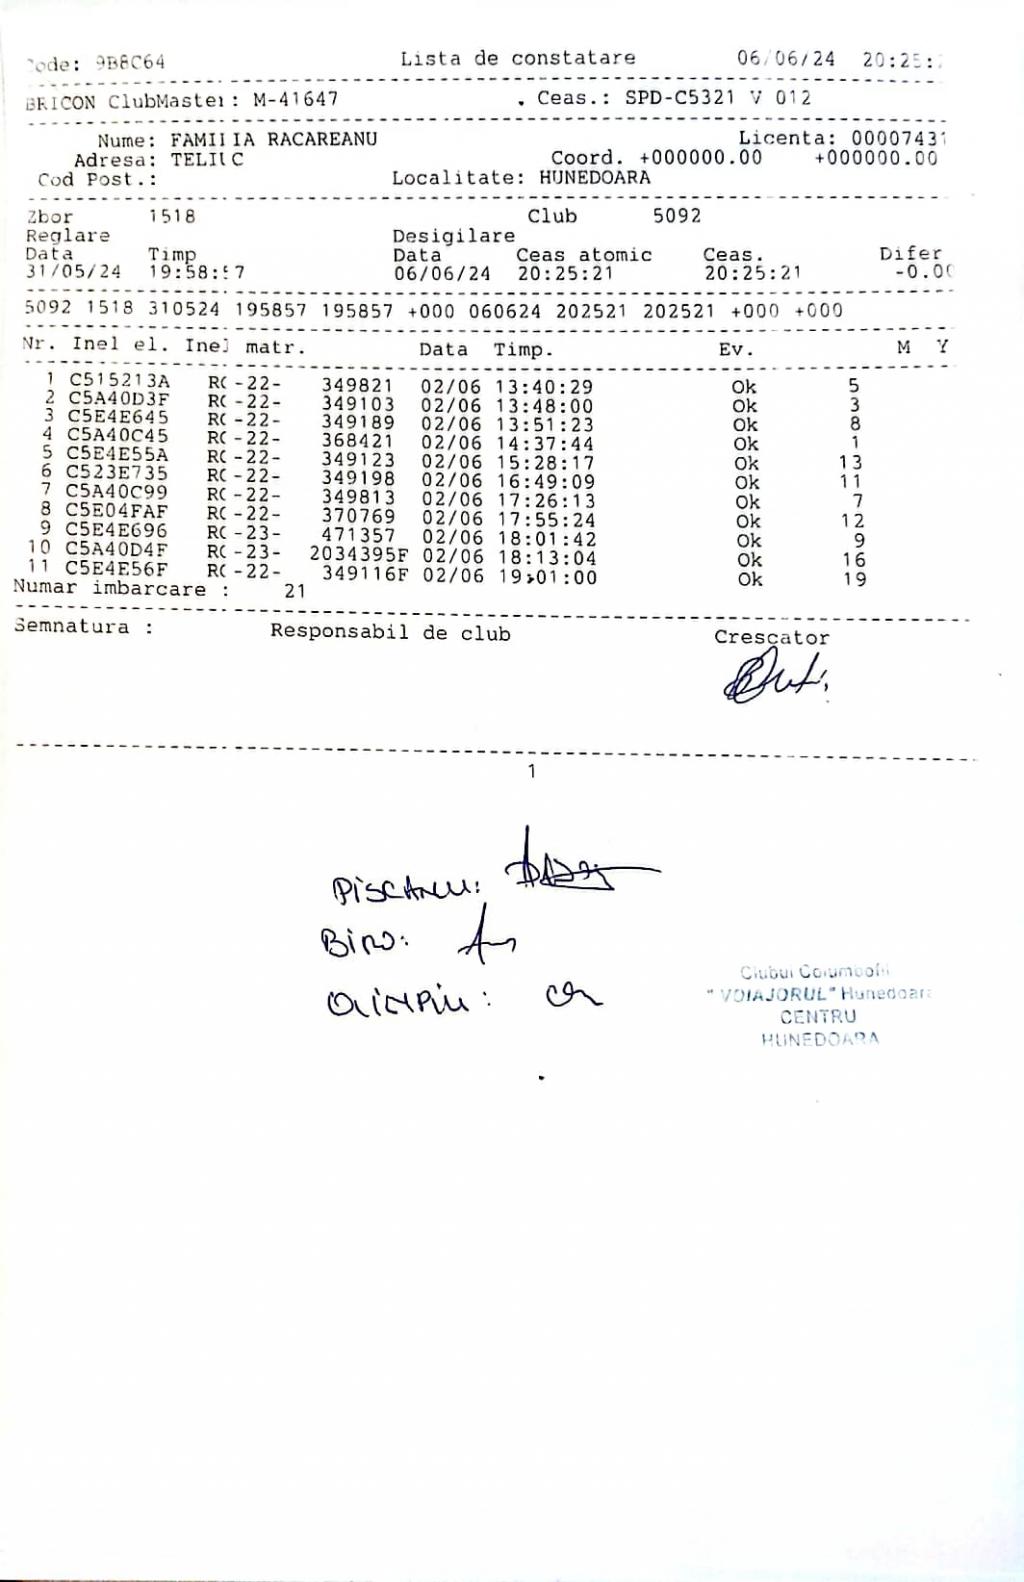 Code: 9B8C64 Lista de constatare 06/06/24 20:25:
BRICON ClubMaster: M-41647 . Ceas.: SPD-C5321 V 012
Nume: FAMILIA RACAREANU Licenta: 00007431
Adresa: TELIUC Coord. +000000.00 +000000.00
Cod Post.: Localitate: HUNEDOARA
Zbor 1518 Club 5092
Reglare Desigilare
Data Timp Data Ceas atomic Ceas. Difer
31/05/24 19:58:57 06/06/24 20:25:21 20:25:21 -0.00
5092 1518 310524 195857 195857 +000 060624 202521 202521 +000 +000
Nr. Inel el. Inel matr. Data Timp. Ev. M Y
1 C515213A RO -22- 349821 02/06 13:40:29 Ok 5
2 C5A40D3F RO -22- 349103 02/06 13:48:00 Ok 3
3 C5E4E645 RO -22- 349189 02/06 13:51:23 Ok 8
4 C5A40C45 RO -22- 368421 02/06 14:37:44 Ok 1
5 C5E4E55A RO -22- 349123 02/06 15:28:17 Ok 13
6 C523E735 RO -22- 349198 02/06 16:49:09 Ok 11
7 C5A40C99 RO -22- 349813 02/06 17:26:13 Ok 7
8 C5E04FAF RO -22- 370769 02/06 17:55:24 Ok 12
9 C5E4E696 RO -23- 471357 02/06 18:01:42 Ok 9
10 C5A40D4F RO -23- 2034395F 02/06 18:13:04 Ok 16
11 C5E4E56F RO -22- 349116F 02/06 19:01:00 Ok 19
Numar imbarcare : 21
Semnatura : Responsabil de club Crescator
1
PISCANU:
BIRO:
OLIMPIU:
Clubul Columbofil
"VOIAJORUL" Hunedoara
CENTRU
HUNEDOARA